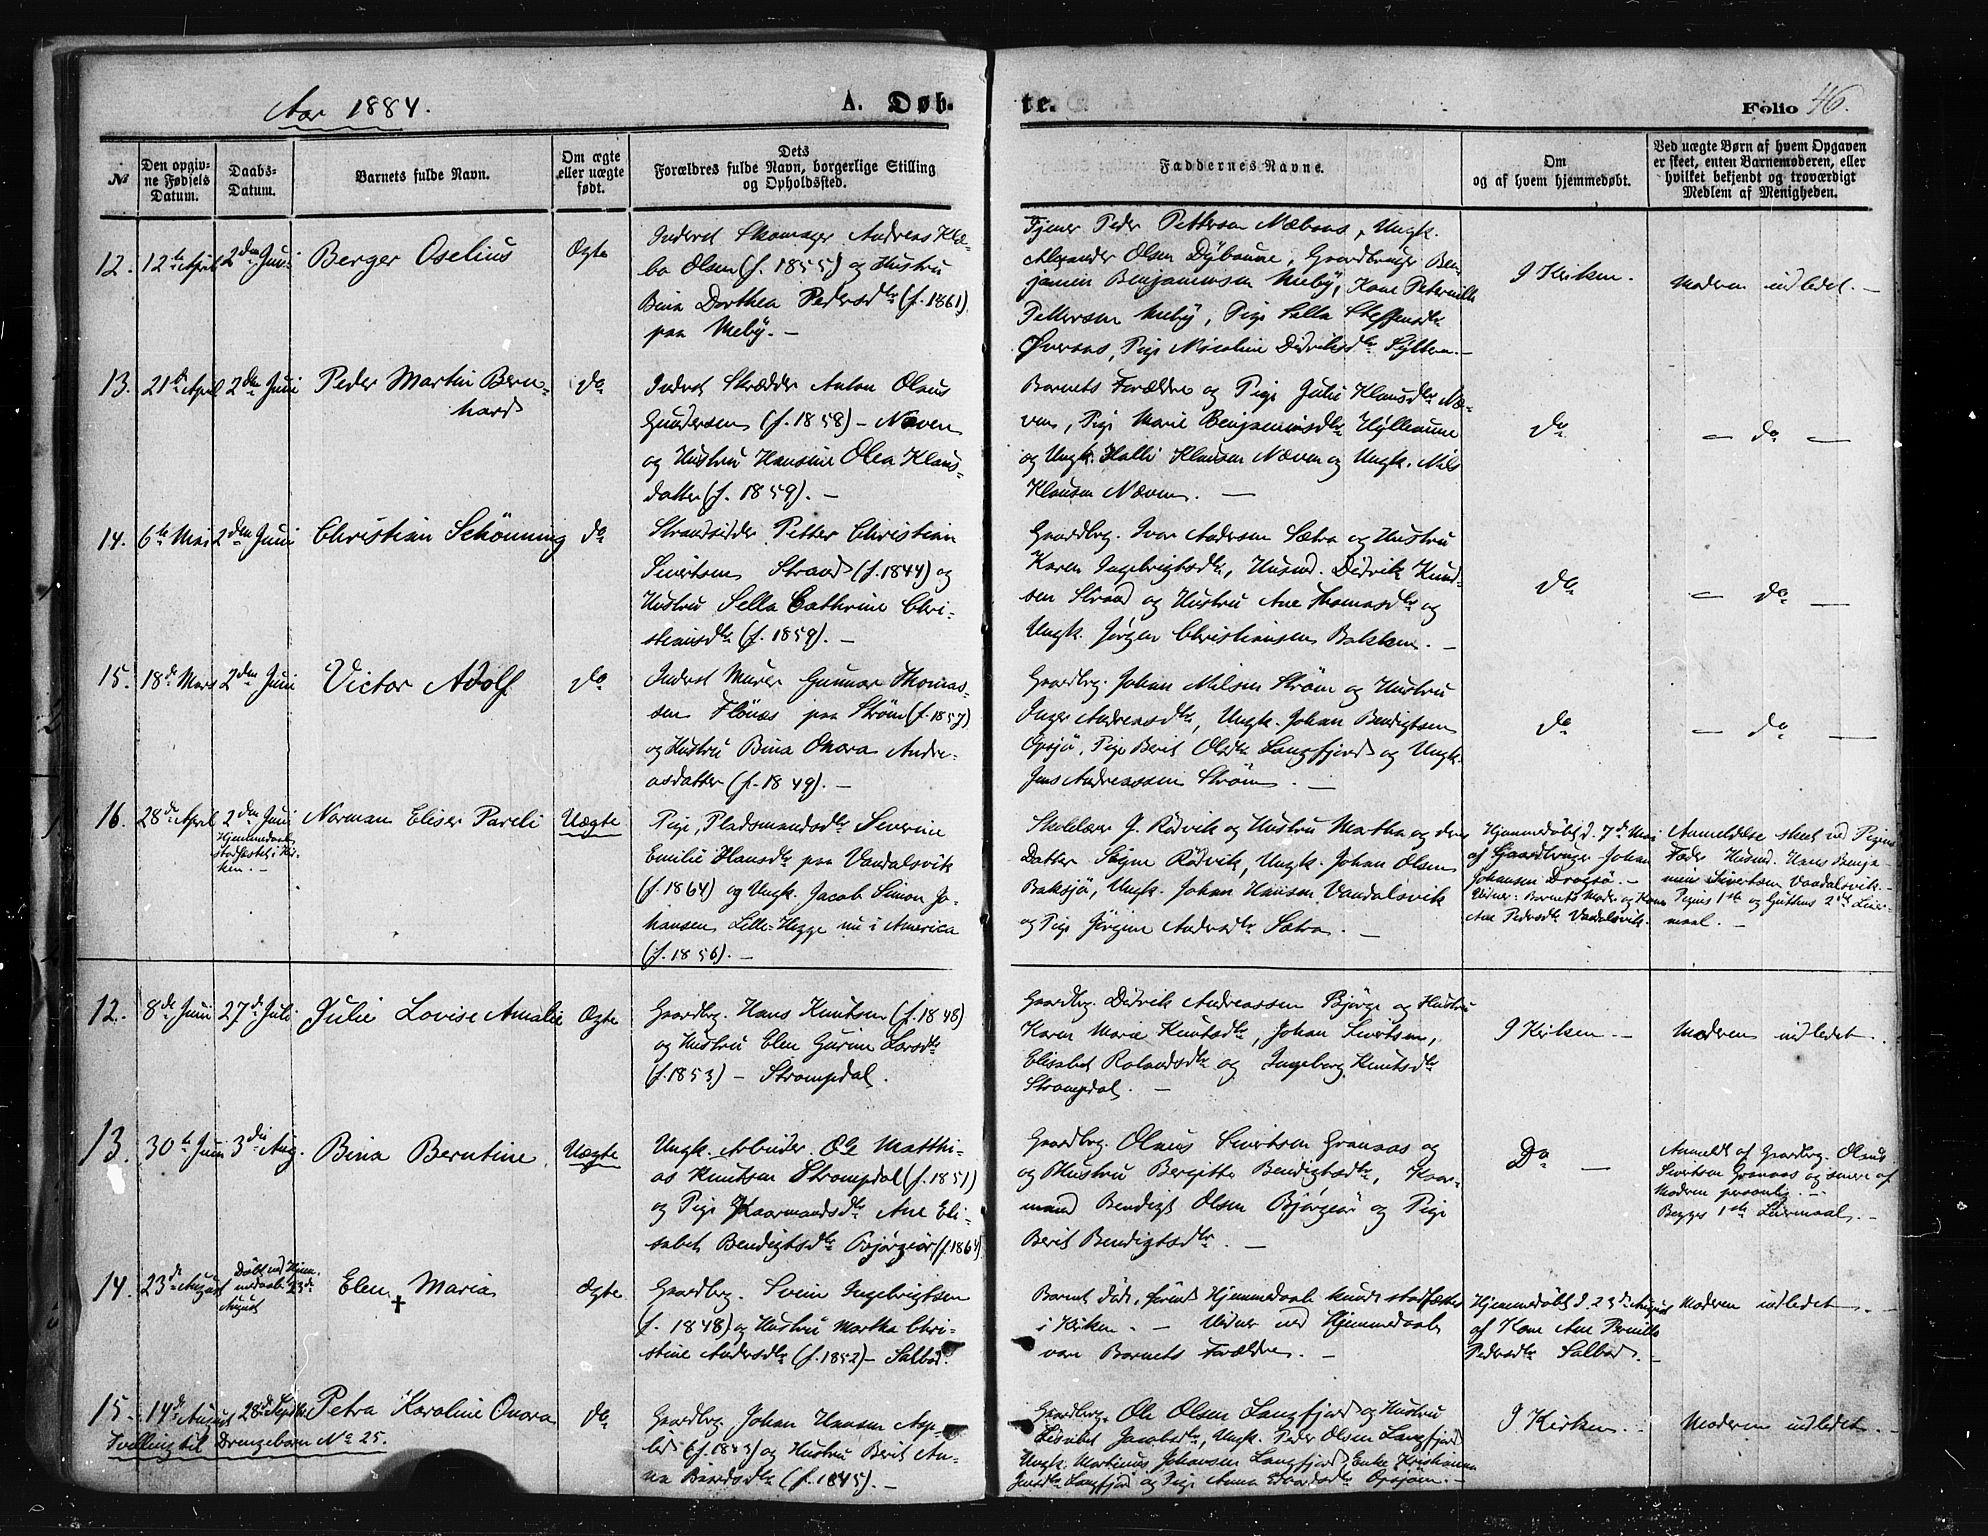 Aar 1884.
A. Døb-
te.
Folio 46.
№
Den opgiv-
ne Fødsels
Datum.
Daabs-
Datum.
Barnets fulde Navn.
Om ægte
eller uægte
født.
Dets
Forældres fulde Navn, borgerlige Stilling
og Opholdssted.
Faddernes Navne.
Om
og af hvem hjemmedøbt.
Ved uægte Børn af hvem Opgaven
er skeet, enten Barnemoderen, eller
hvilket bekjendt og troværdigt
Medlem af Menigheden.
12.
12te April
2den Juni
Berger Oselius
Ægte
Inderst Skomager Andreas Klæ-
bo Olsen (f. 1855) og Hustru
Bina Dorthea Pedersdtr (f. 1861)
paa Meby. –
Tjener Peder Pettersen Næbaas, Ungk.
Alexander Olsen Dybaune, Gaardbruger Ben-
jamin Benjaminsen Meby, Kone Peternille
Pettersen Meby, Pige Salla Steffensdtr
Øveraas, Pige Nicoline Didriksdtr Sylten. –
I Kirken. –
Moderen indledet. –
13.
21de April
2den Juni
Peder Martin Bern-
hard
do
Inderst Skrædder Anton Olaus
Gundersen (f. 1858) – Næven
og Hustru Hansine Olea Klaus-
datter (f. 1859). –
Barnets Forældre og Pige Julie Klausdtr Næ-
ven, Pige Marie Benjaminsdtr Hylleaune
og Ungk. Halli Klausen Næven og Ungk. Nils
Klausen Næven. –
do
– do –
14.
6te Mai
2den Juni
Christian Schönning
do
Strandsidder Petter Christian
Sivertsen Strand (f. 1844) og
Hustru Sella Cathrine Chri-
stiansdtr (f. 1859). –
Gaardbrg. Ivar Andersen Sætra og Hustru
Karen Ingebrigtsdtr, Husmd. Didrik Knud-
sen Strand og Hustru Ane Thomasdtr og
Ungk. Jörgen Christiansen Bakken. –
do
– do –
15.
18de Mars
2den Juni
Victor Adolf
do
Inderst Murer Gunnar Thomas-
sen Flönes paa Ström (f. 1857)
og Hustru Bina Onora Andre-
asdatter (f. 1849). –
Gaardbrg. Johan Nilsen Ström og Hustru
Inger Andreasdtr, Ungk. Johan Bendigtsen
Opsjö, Pige Berit Olsdtr Langfjord og Ungk.
Jens Andreassen Ström. –
do
– do –
16.
28de April
2den Juni
Hjemmedaaben
stadfæstet i Kir-
ken. –
Norman Eliser Pareli
Uægte
Pige, Pladsmandsdtr Severine
Emilie Hansdtr paa Vandalsvik
(f. 1864) og Ungk. Jacob Simon Jo-
hansen Lille-Hegge nu i America
(f. 1856). –
Skolelærer G. Rödvik og Hustru Martha og deres
Datter Signe Rödvik, Ungk. Johan Olsen
Baksjö, Ungk. Johan Hansen Vandalsvik
og Pige Jörgine Andersdtr Sætra. –
Hjemmedöbt d. 7de Mai
af Gaardbruger Johan
Johansen Dragsö. –
Vidner: Barnets Moder og Kone
Ane Pedersdtr Vandalsvik.
Anmeldelse skeet ved Pigens
Fader Husmd. Hans Benja-
min Sivertsen Vandalsvik. –
Pigens 1ste og Guttens 2det Leier-
maal. –
12.
8de Juni
27de Juli
Julie Lovise Amalie
Ægte
Gaardbrg. Hans Knutsen (f. 1848)
og Hustru Elen Gurine Larsdtr
(f. 1853) – Strompdal.
Gaardbrg. Didrik Andreassen Bjørge og Hustru
Karen Marie Knutsdtr, Johan Sivertsen,
Elisabet Rolandsdtr og Ingeborg Knutsdtr
Strompdal. –
I Kirken –
Moderen indledet.
13.
30te Juni
3die Aug.
Bina Berntine
Uægte
Ungk. Arbeider Ole Matthi-
as Knutsen Strompdal (f. 1851)
og Pige Kaarmandsdtr Ane Eli-
sabet Bendigtsdtr Bjørgeiör (f. 1864)
Gaardbrg. Olaus Sivertsen Granaas og
og Hustru Bergitte Bendigtsdtr, Kaar-
mand Bendigt Olsen Bjørgeiör og Pige
Berit Bendigtsdtr. –
Do –
Anmeldt af Gaardbrg. Olaus
Sivertsen Granaas og senere af
Moderen personlig. –
Begges 1ste Leiermaal. –
14.
23de August
Döbt ved Hjem-
medaab 23de
August
Elen Maria
Ægte
Gaardbrg. Svein Ingebrigtsen
(f. 1848) og Hustru Martha Chri-
stine Andersdtr (f. 1852) – Salbod.
Barnet död, förend Hjemmedaab kunde stadfæstes
i Kirken. – Vidner ved Hjemmedaab
vare Barnets Forældre. –
Hjemmedöbt d. 23de August
af Kone Ane Pernille
Pedersdtr Salbod. –
Moderen indledet. –
15.
14de August
28de Septbr
Petra Karoline Onora
Tvilling til Drengebarn No 25.
do
Gaardbrg. Johan Hansen Asp-
lid (f. 1843) og Hustru Berit An-
na Baardsdtr (f. 1845). –
Gaardbrg. Ole Olsen Langfjord og Hustru
Elisabet Jacobsdtr, Ungk. Peder Olsen Langfjord
Ungk. Martinus Johansen Langfjord, Enke Kristianna
Jensdtr Langfjord og Pige Anna Baardsdtr Opsjöen. –
I Kirken. –
Moderen indledet. –